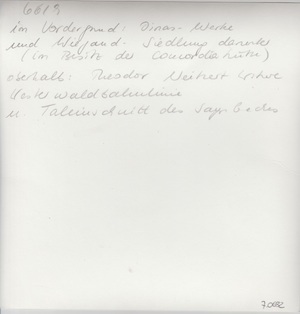 6619
im Vordergrund: Dinas-Werke
und Wiegand-Siedlung darunter
(im Besitz der Concordiahütte)
oberhalb: Theodor Neizert
Westerwaldbahnlinie
u. Taleinschnitt des Saynbaches
7032